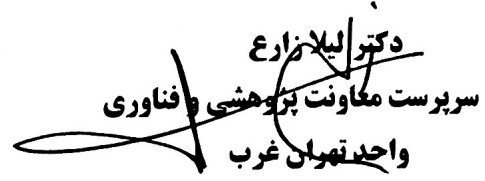 دکتر لیلا زارع
سرپرست معاونت پژوهشی و فناوری
واحد تهران غرب